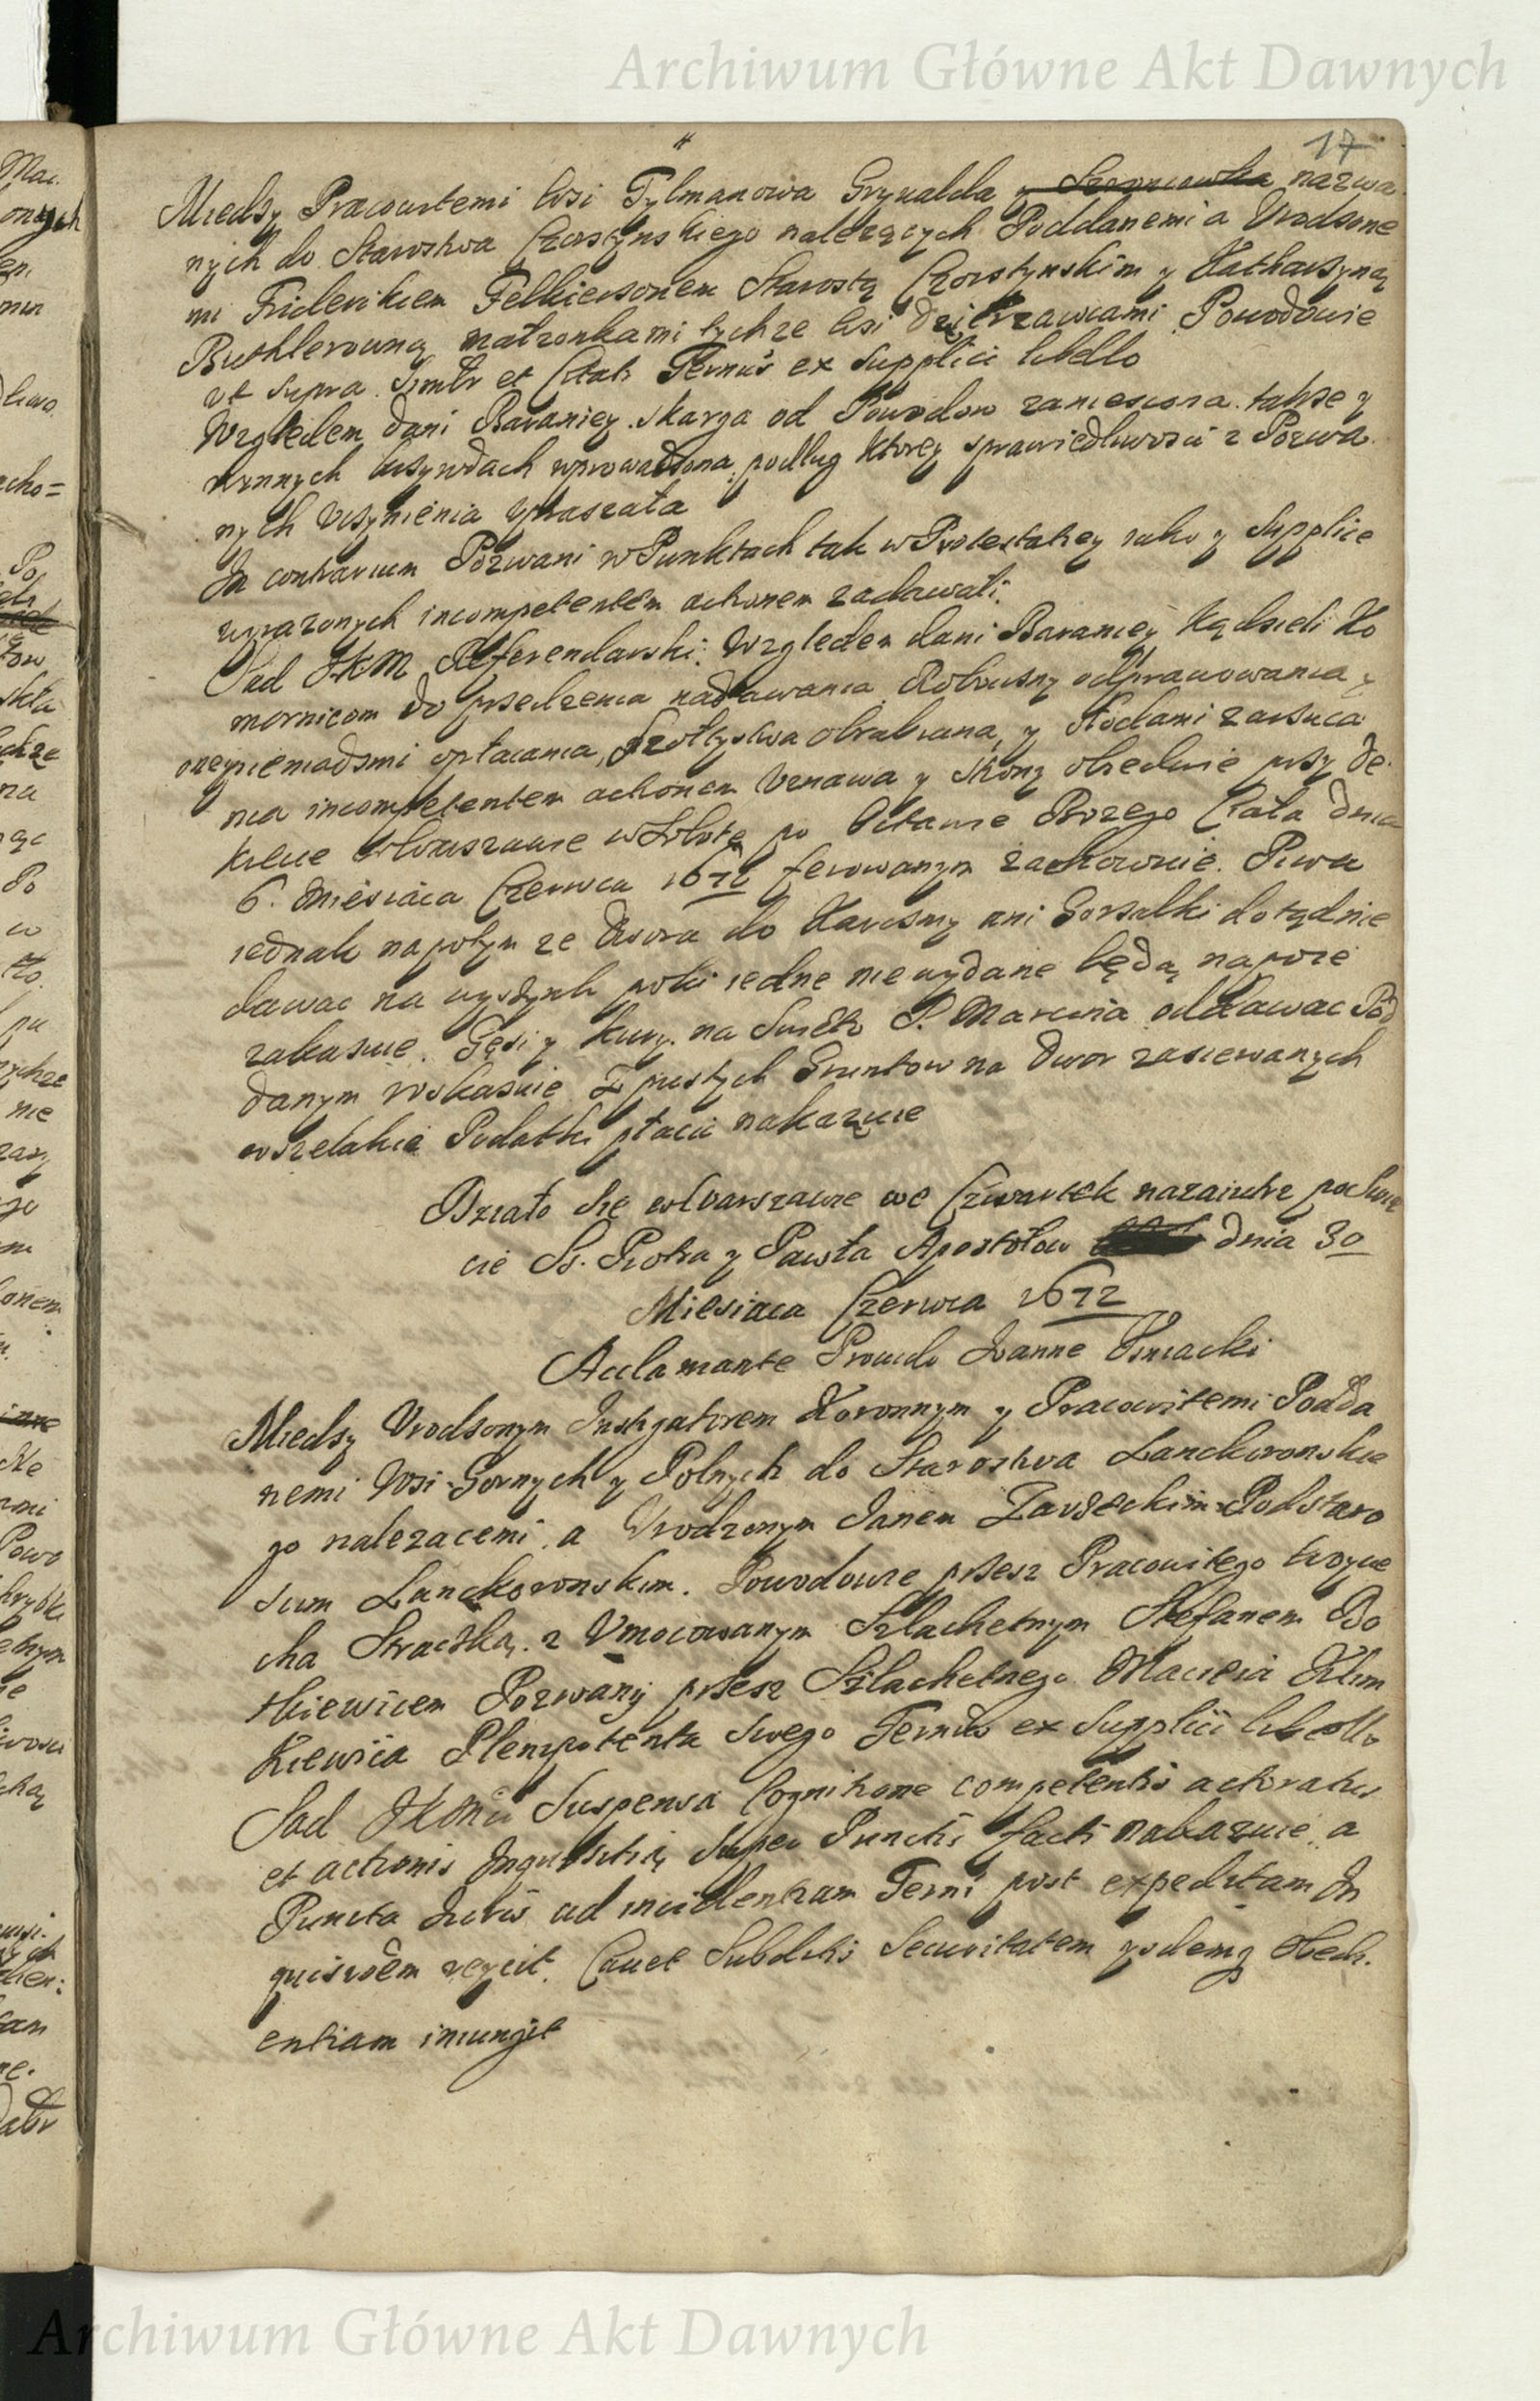 Archiwum Główne Akt Dawnych
17
Miedzy Pracowitemi Wsi Tylmanowa Grywalda y Szczawnicka nazwa
nych do Starostwa Czorsztynskiego należących Poddanemi a Urodzone
mi Friderikiem Felkiersonem Starostą Czorsztynskim y Katharzyną
Buthlerowną małzonkami tychze Wsi dzierzawcami Powodowie
ut supra Simlr et Citati Termin̄ ex supplici libello
Względem dani Baraniey skarga od Powodow zaniesiona takze y
w innych krzywdach wprowadzona podług ktorey sprawiedliwosci z Pozwa
nych uczynienia upraszała
In contrarium Pozwani w Punktach tak w Protestatiey iako y Supplice
wyrazonych incompetentem actionem zadawali.
Sąd JKM Referendarski. Względem dani Baraniey Kądzieli Ko
mornicom do przedzenia nadawania Robocizny odprawowania y
oney pieniądzmi opłacania, Szołtystwa obrabiana, y Słodami zarzuca
nia incompetentem actionem uznawa y strony obiedwie przy de
krecie w Warszawie w Sobotę po Oktawie Bozego Ciała dnia
6. miesiąca Czerwca 1671 ferowanym zachowuie. Piwa
iednak napotym ze dwora do Karczmy ani Gorzałki dotądnie
dawac na wyszynk poki iedne nie wydane będą napoie
zakazuie. Gęsi y kury na Swięto S. Marcina oddawac Pod
danym wskazuie Z pustych Gruntow na dwor zasiewanych
wszelakie Podatki płacic nakazuie
Działo się w Warszawie we Czwartek nazaiutrz po Swię
cie Ss. Piotra y Pawła Apostołow dnia 30
Miesiąca Czerwca 1672
Acclamante Provido Joanne
Miedzy Urodzonym Instygatorem Koronnym y Pracowitemi Podda
nemi Wsi Gornych y Polnych do Starostwa Lanckoronskie
go nalezacemi a Urodzonym Janem Zarzeckim Podstaro
scim Lanckoronskim. Powodowie przez Pracowitego Woycie
cha Straczką z Umocowanym Szlachetnym Stefanem Bo
tkiewicem Pozwany przesz Szlachetnego Macieia Klim
kiewica Plenipotenta swego Termin̄ ex supplici libello
Sąd JKMci Suspensa Cognitione competentis actoratus
et actionis Inquisitią super Puncta facti nakazuie a
Puncta Juris ad incidentiam Termi post expeditam In
quisitiōem reycit. Cauet Subditis Securitatem y odemq Obedi
entiam iniungit
Archiwum Główne Akt Dawnych